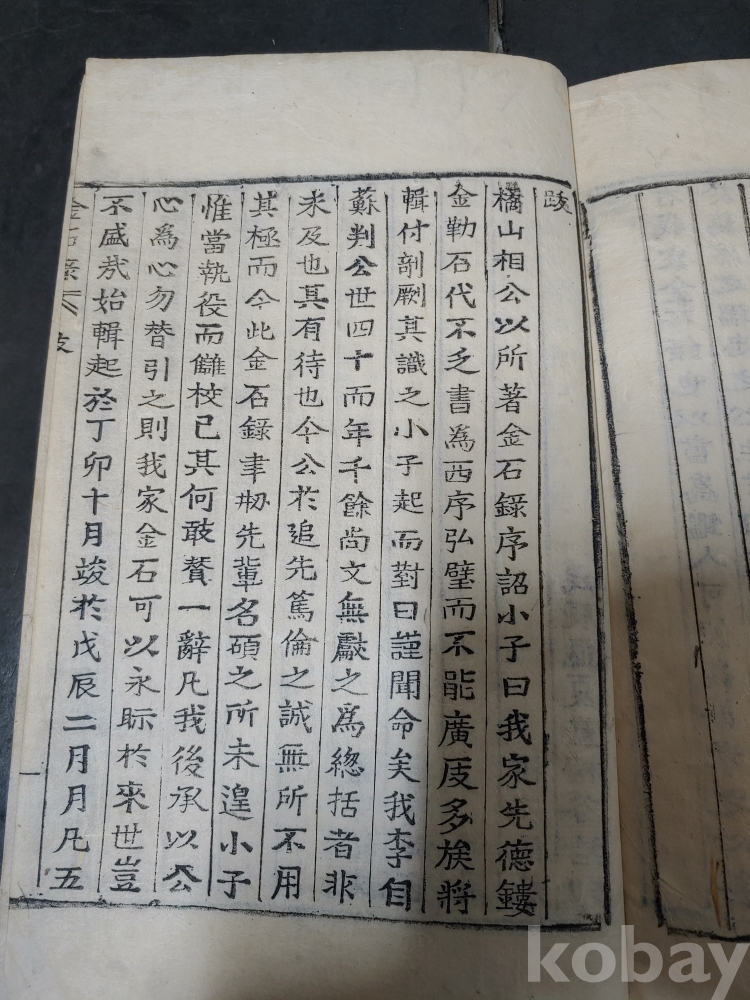 跋
橘山相公以所著金石錄序詔小子曰我家先德鏤
金勒石代不乏書為西序弘璧而不能廣展多族將
輯付剞劂其識之小子起而對曰謹聞命矣我李自
蘇判公世四十而年千餘尚文無獻之為總括者非
未及也其有待也今公於追先篤倫之誠無所不用
其極而今此金石錄聿刱先輩名碩之所未遑小子
惟當執役而讎校已其何敢贅一辭凡我後承以公
心為心勿替引之則我家金石可以永眎於來世豈
不盛㢤始輯起於丁卯十月竣於戊辰二月月凡五
金石錄 跋 一
kobay